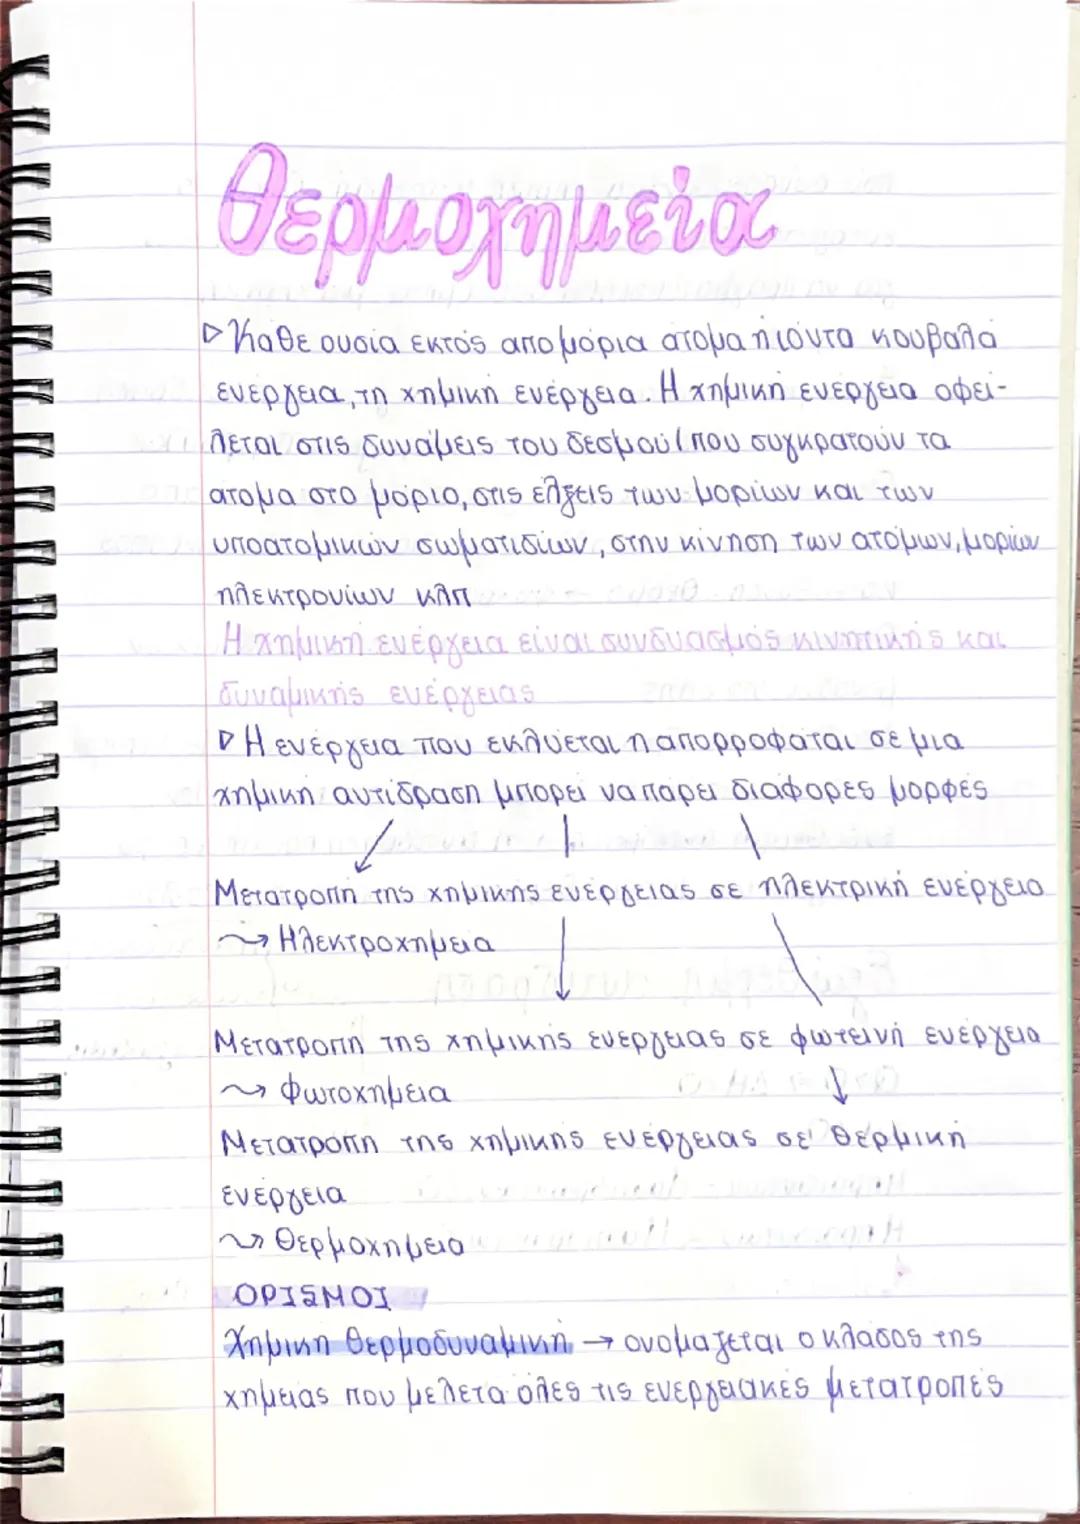 Θερμοχημεία
▷ Κάθε ουσία εκτός από μόρια άτομα ή ιόντα κουβαλά
ενέργεια, τη χημική ενέργεια. Η χημική ενέργεια οφεί-
λεται στις δυνάμεις του δεσμού (που συγκρατούν τα
άτομα στο μόριο, στις έλξεις των μορίων και των
υποατομικών σωματιδίων, στην κίνηση των ατόμων, μορίων
ηλεκτρονίων κλπ
Η χημική ενέργεια είναι συνδυασμός κινητικής και
δυναμικής ενέργειας
▷ Η ενέργεια που εκλύεται ή απορροφάται σε μια
χημική αντίδραση μπορεί να πάρει διάφορες μορφές
Μετατροπή της χημικής ενέργειας σε ηλεκτρική ενέργεια
⤳ Ηλεκτροχημεία
Μετατροπή της χημικής ενέργειας σε φωτεινή ενέργεια
⤳ Φωτοχημεία
Μετατροπή της χημικής ενέργειας σε θερμική
ενέργεια
⤳ Θερμοχημεία
ΟΡΙΣΜΟΙ
Χημική θερμοδυναμική → ονομάζεται ο κλάδος της
χημείας που μελετά όλες τις ενεργειακές μετατροπές